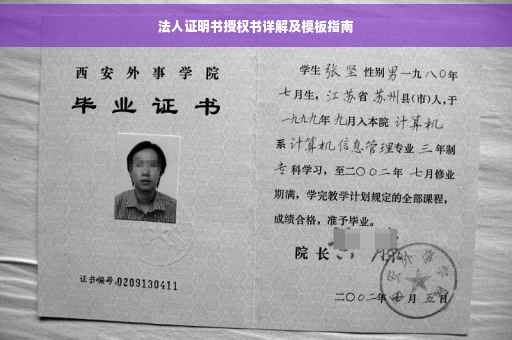 法人证明书授权书详解及模板指南
西安外事学院
毕业证书
证书编号:0209130411
学生张坚性别男一九八〇年
七月生，江苏省苏州县(市)人，于
一九九九年九月入本院计算机
系计算机信息管理专业三年制
专科学习，至二〇〇二年七月修业
期满，学完教学计划规定的全部课程，
成绩合格，准予毕业。
院长
二〇〇二年 月五日